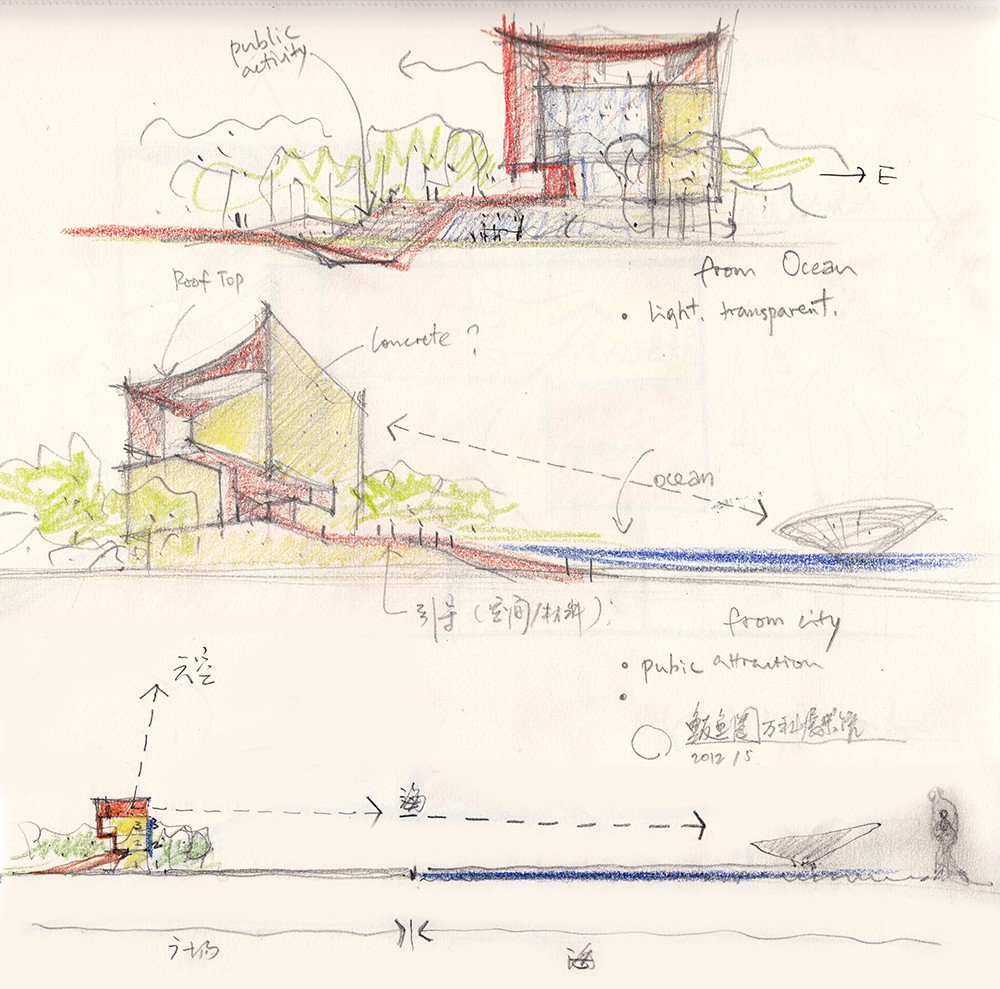 public
activity
E
from Ocean
• Light. transparent.
Roof Top
Concrete ?
ocean
引导 (空间/材料):
from city
• pubic attraction
•
天空
鲅鱼圈万科展示馆
2012/5
海
3
2
广场
海